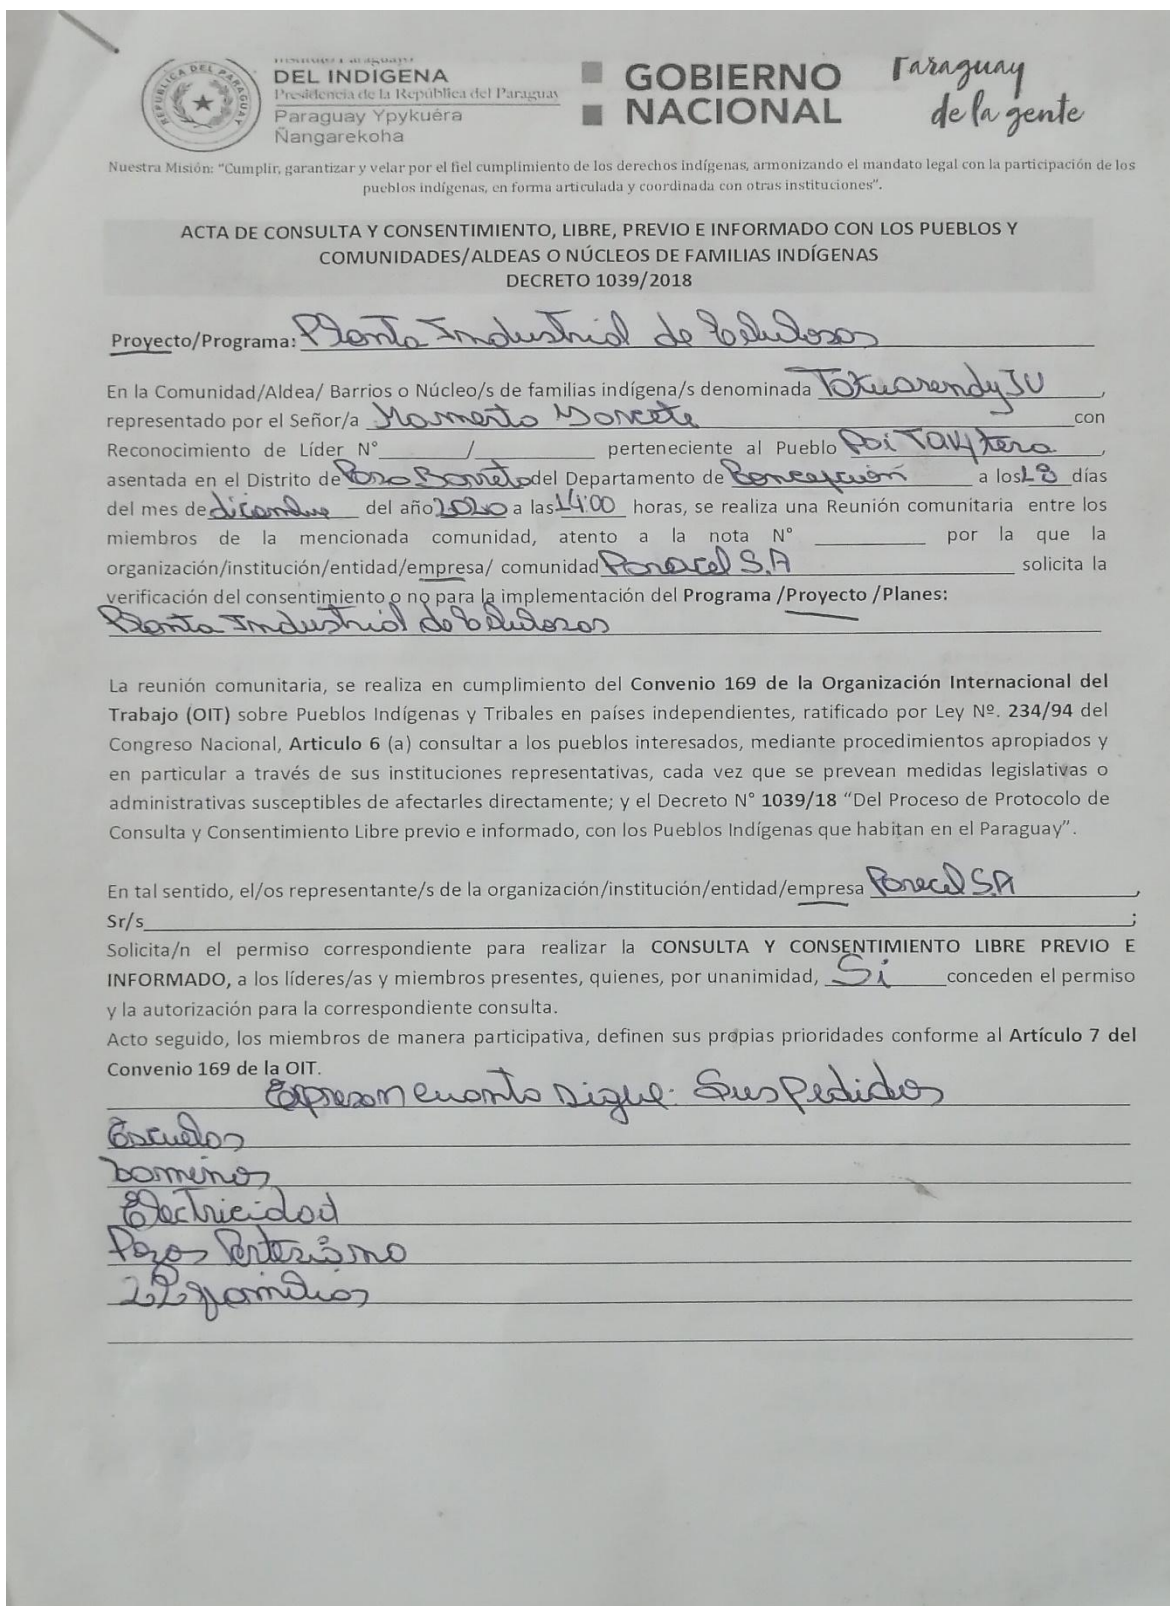 Instituto Paraguayo
DEL INDIGENA
Presidencia de la República del Paraguay
Paraguay Ypykuéra
Ñangarekoha
REPUBLICA DEL PARAGUAY
GOBIERNO
NACIONAL
Paraguay
de la gente
Nuestra Misión: “Cumplir, garantizar y velar por el fiel cumplimiento de los derechos indígenas, armonizando el mandato legal con la participación de los
pueblos indígenas, en forma articulada y coordinada con otras instituciones”.
ACTA DE CONSULTA Y CONSENTIMIENTO, LIBRE, PREVIO E INFORMADO CON LOS PUEBLOS Y
COMUNIDADES/ALDEAS O NÚCLEOS DE FAMILIAS INDÍGENAS
DECRETO 1039/2018
Proyecto/Programa: Planta Industrial de Celulosas
En la Comunidad/Aldea/ Barrios o Núcleo/s de familias indígena/s denominada Takuarendy JU,
representado por el Señor/a Mamerto con
Reconocimiento de Líder N°______/____________ perteneciente al Pueblo Pai Tavytera,
asentada en el Distrito de Paso Barreto del Departamento de Concepción a los 18 días
del mes de diciembre del año 2020 a las 14:00 horas, se realiza una Reunión comunitaria entre los
miembros de la mencionada comunidad, atento a la nota N° __________ por la que la
organización/institución/entidad/empresa/ comunidad Paracel S.A solicita la
verificación del consentimiento o no para la implementación del Programa /Proyecto /Planes:
Planta Industrial de Celulosas
La reunión comunitaria, se realiza en cumplimiento del Convenio 169 de la Organización Internacional del
Trabajo (OIT) sobre Pueblos Indígenas y Tribales en países independientes, ratificado por Ley Nº. 234/94 del
Congreso Nacional, Articulo 6 (a) consultar a los pueblos interesados, mediante procedimientos apropiados y
en particular a través de sus instituciones representativas, cada vez que se prevean medidas legislativas o
administrativas susceptibles de afectarles directamente; y el Decreto N° 1039/18 “Del Proceso de Protocolo de
Consulta y Consentimiento Libre previo e informado, con los Pueblos Indígenas que habitan en el Paraguay”.
En tal sentido, el/os representante/s de la organización/institución/entidad/empresa Paracel S.A,
Sr/s____________________;
Solicita/n el permiso correspondiente para realizar la CONSULTA Y CONSENTIMIENTO LIBRE PREVIO E
INFORMADO, a los líderes/as y miembros presentes, quienes, por unanimidad, Si conceden el permiso
y la autorización para la correspondiente consulta.
Acto seguido, los miembros de manera participativa, definen sus propias prioridades conforme al Artículo 7 del
Convenio 169 de la OIT.
Expresan cuanto sigue: Sus Pedidos
Escuelas
Caminos
Electricidad
Pozos Artesiano
22 familias